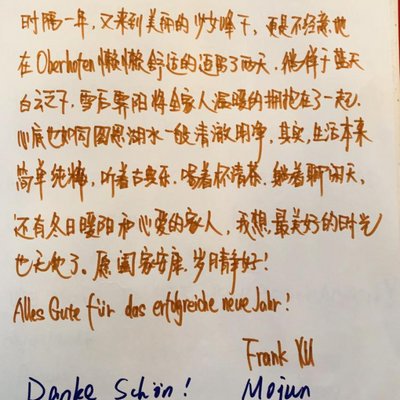 时隔一年，又来到美丽的少女峰下，更是不经意地
在Oberhofen懒懒舒适的逗留了两天，徜徉于蓝天
白云之下，雪后霁阳将全家人温暖的拥抱在了一起，
心底也如同图恩湖水一般清澈明净，其实，生活本来
简单纯粹，听着古典乐，喝着杯清茶，躺着聊闲天，
还有冬日暖阳和心爱的家人，我想，最美好的时光
也无他了。愿阖家安康，岁月静好！
Alles Gute für das erfolgreiche neue Jahr!
Frank XU
Danke Schön! Mojun